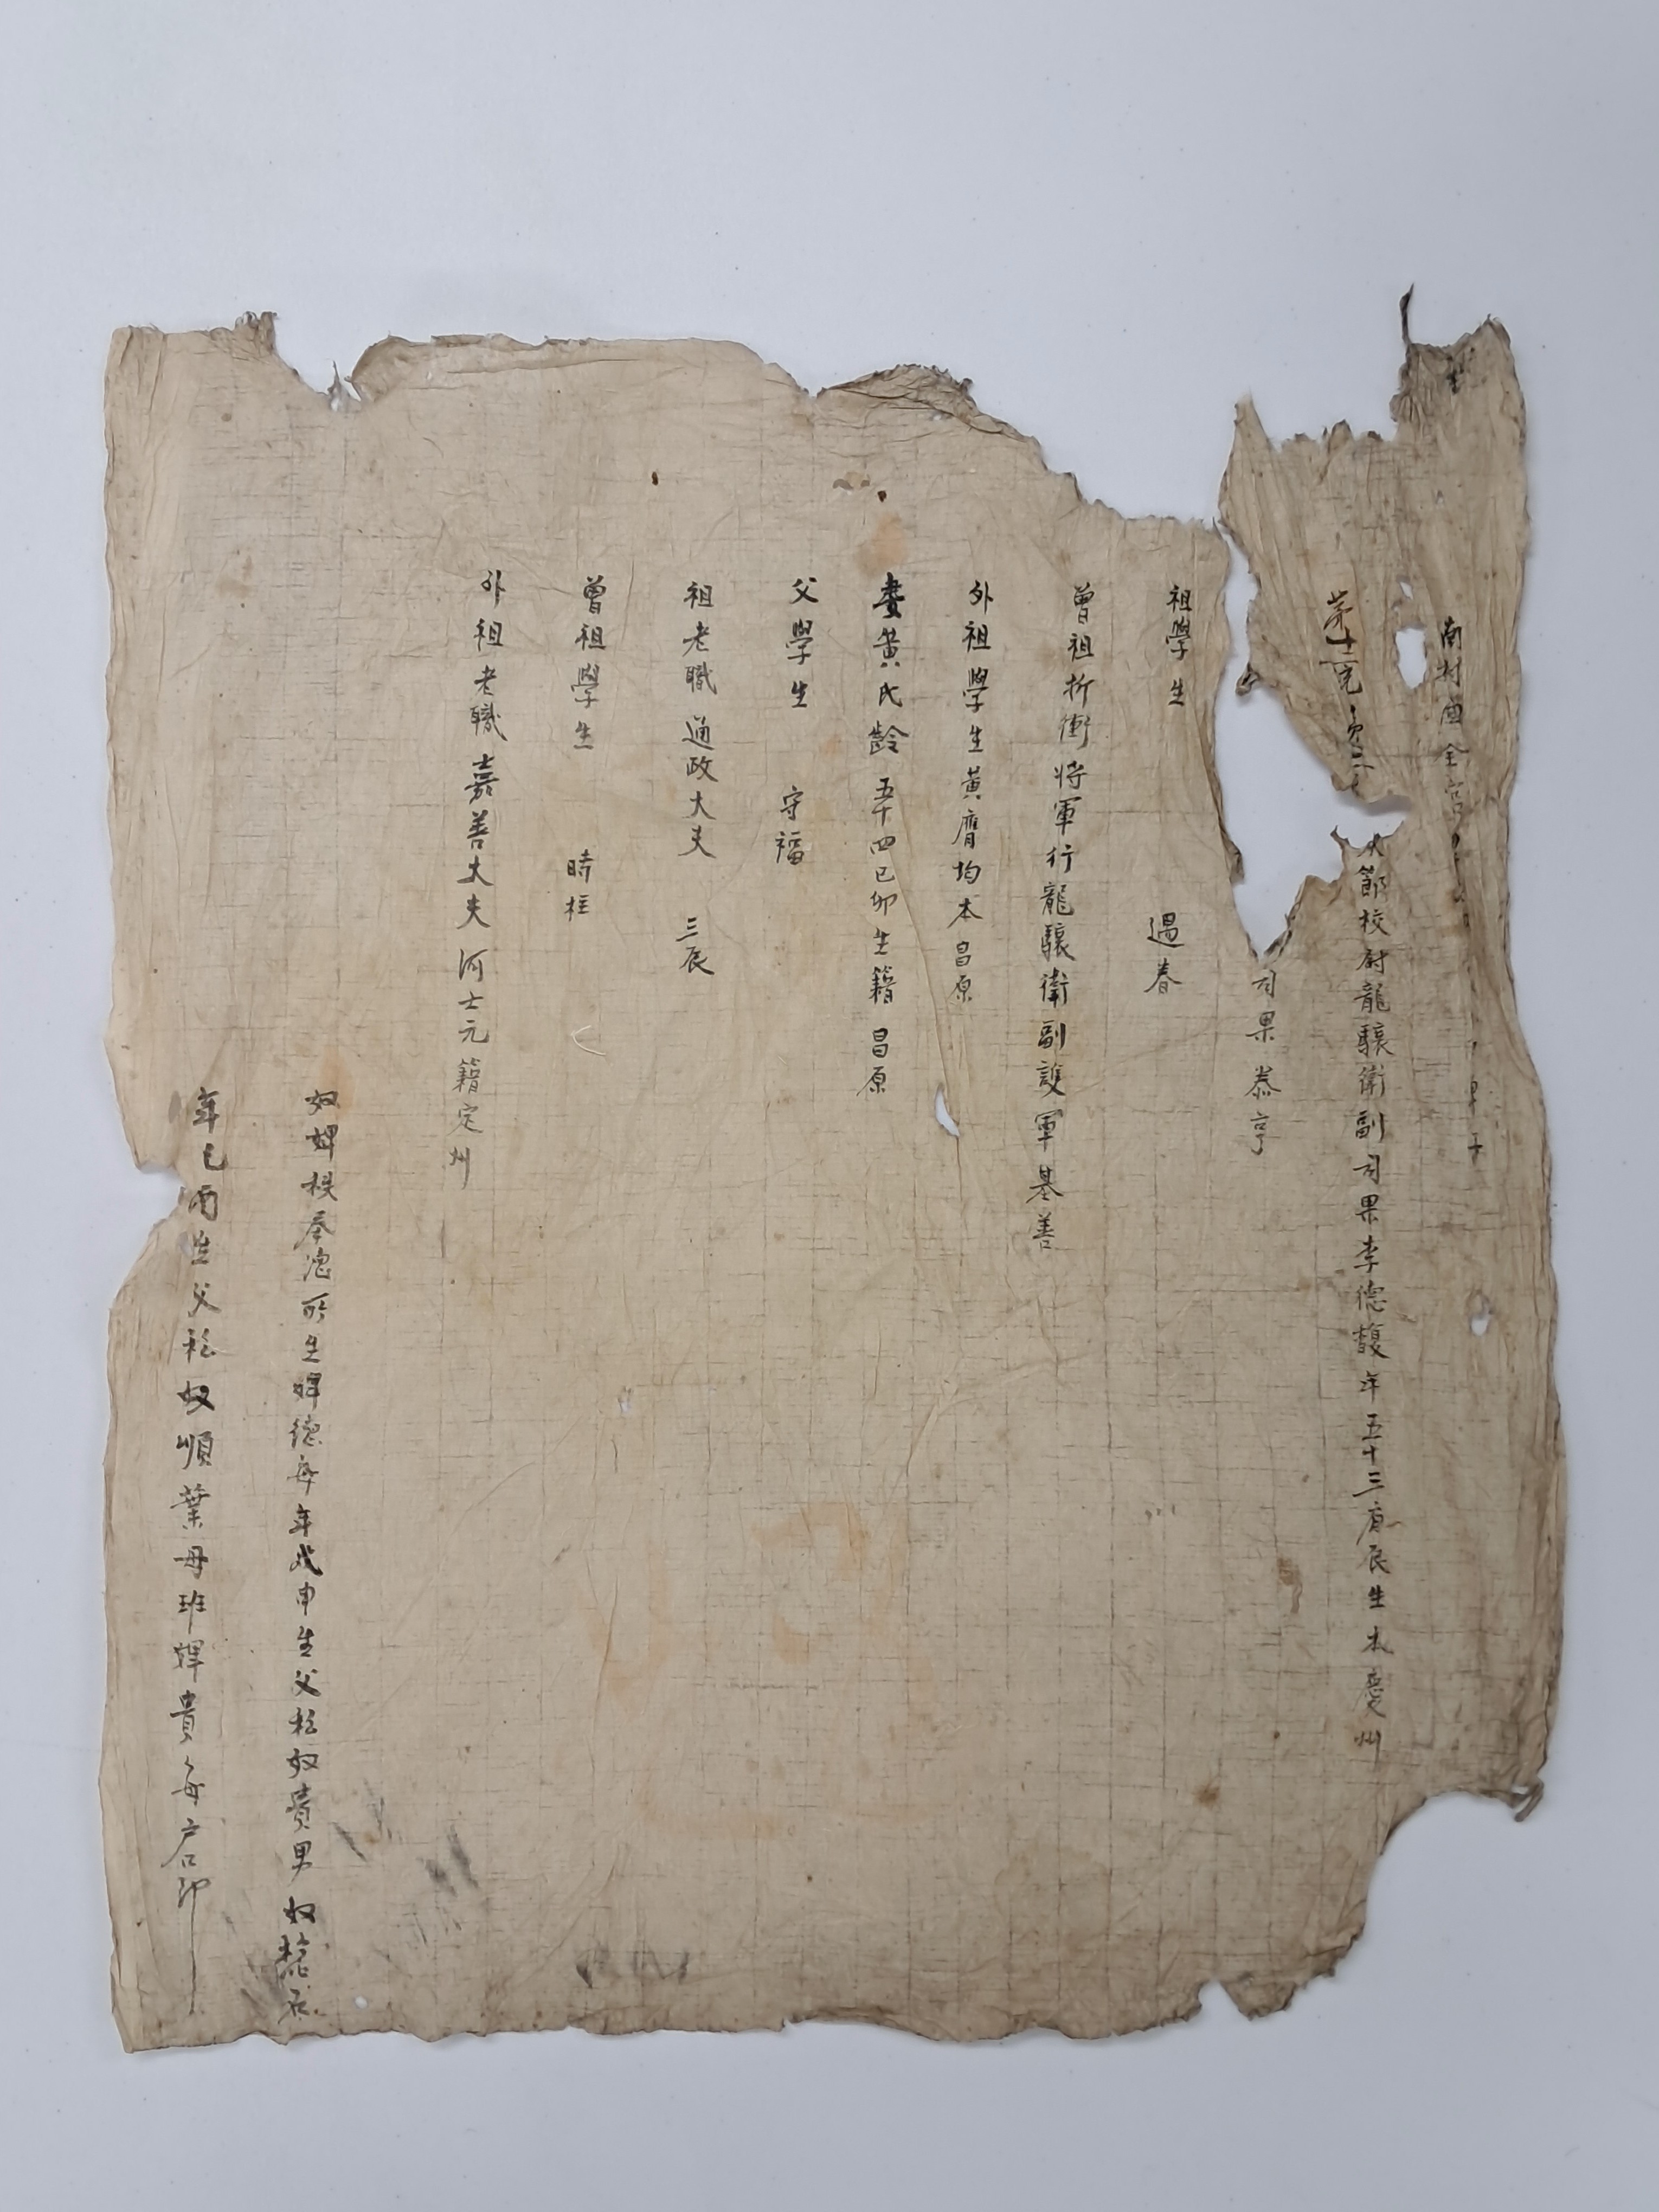 南村酉全宮
第十二 節校尉龍驤衛副司果李德馥年五十三庚辰生本慶州
司果泰亨
祖學生 遇春
曾祖折衝將軍行龍驤衛副護軍基善
外祖學生黃膺均本昌原
妻黃氏齡五十四己卯生籍昌原
父學生 守福
祖老職通政大夫 三辰
曾祖學生 時柱
外祖老職嘉善大夫河士元籍定州
奴婢秩奉德所生婢德每年戊申生父私奴貴男奴
年己酉生父私奴順葉母班婢貴每戶印